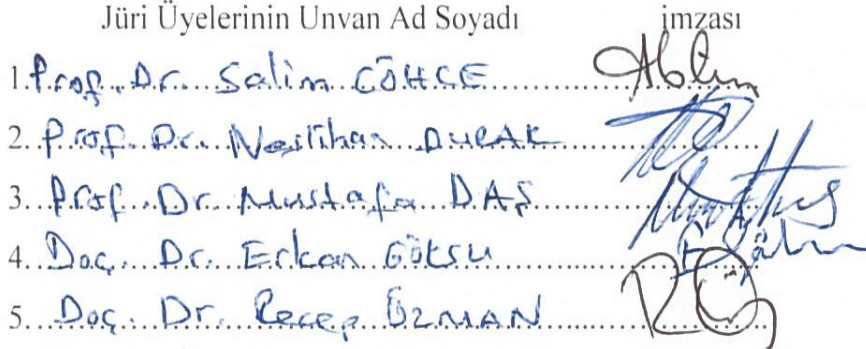 Jüri Üyelerinin Unvan Ad Soyadı imzası
1. Prof. Dr. Salim CÖHCE
2. Prof. Dr. Neslihan DURAK
3. Prof. Dr. Mustafa DAŞ
4. Doç. Dr. Erkan GÖKSU
5. Doç. Dr. Recep ÖZMAN